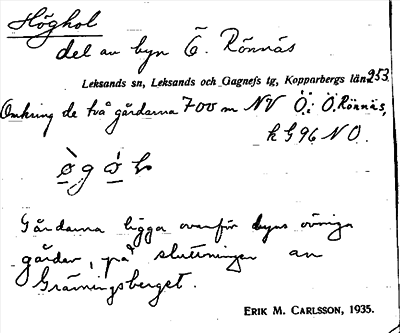 Höghol
del av byn Ö. Rönnäs
Leksands sn, Leksands och Gagnefs tg, Kopparbergs län 253
Omkring de två gårdarna 700 m NV Ö: Ö. Rönnäs,
k G96 NO.
Gårdarna ligga ovanför byns övriga
gårdar, på sluttningen av
Gräningsberget.
ERIK M. CARLSSON, 1935.